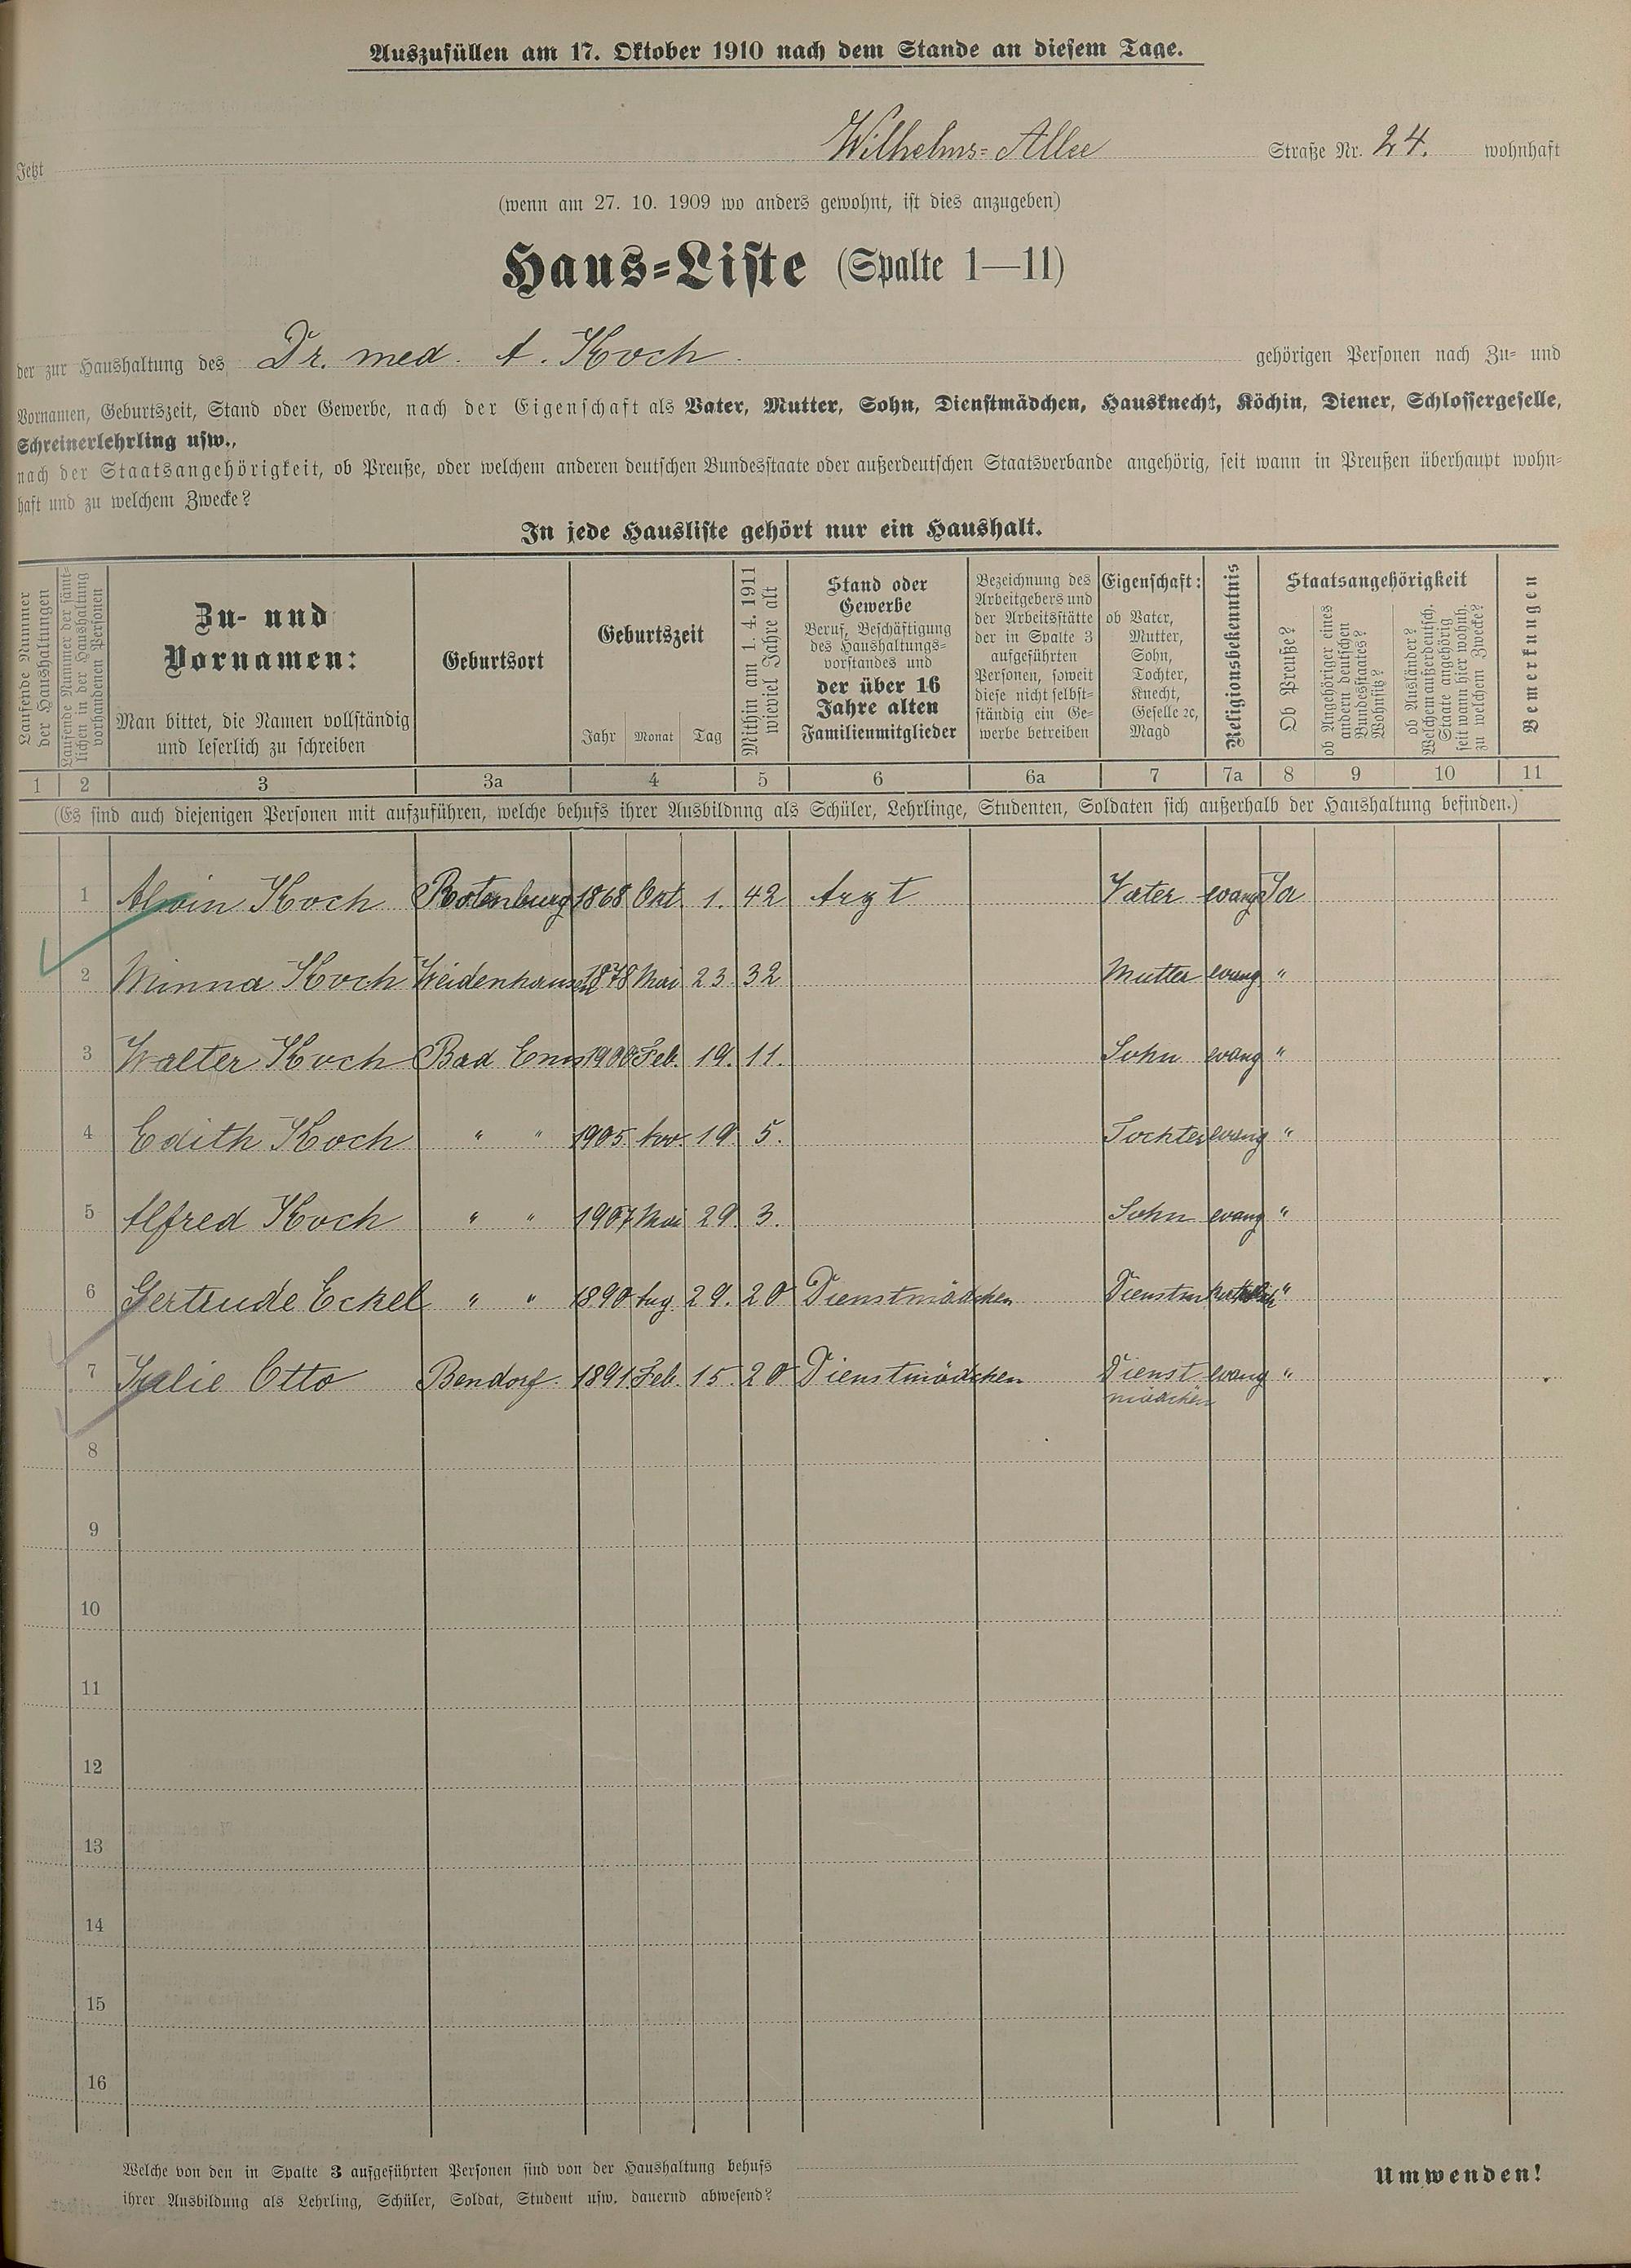 Auszufüllen am 17. Oktober 1910 nach dem Stande an diesem Tage.
Jetzt Wilhelms-Allee Straße Nr. 24. wohnhaft
(wenn am 27. 10. 1909 wo anders gewohnt, ist dies anzugeben)
Haus-Liste (Spalte 1—11)
der zur Haushaltung des Dr. med. A. Koch. gehörigen Personen nach Zu- und
Vornamen, Geburtszeit, Stand oder Gewerbe, nach der Eigenschaft als Vater, Mutter, Sohn, Dienstmädchen, Hausknecht, Köchin, Diener, Schlossergeselle,
Schreinerlehrling usw.,
nach der Staatsangehörigkeit, ob Preuße, oder welchem anderen deutschen Bundesstaate oder außerdeutschen Staatsverbande angehörig, seit wann in Preußen überhaupt wohn-
haft und zu welchem Zwecke?
In jede Hausliste gehört nur ein Haushalt.
Laufende Nummer
der Haushaltungen
Laufende Nummer der sämt-
lichen in der Haushaltung
vorhandenen Personen
Zu- und
Vornamen:
Man bittet, die Namen vollständig
und leserlich zu schreiben
Geburtsort
Geburtszeit
Jahr Monat Tag
Mithin am 1. 4. 1911
wieviel Jahre alt
Stand oder
Gewerbe
Beruf, Beschäftigung
des Haushaltungs-
vorstandes und
der über 16
Jahre alten
Familienmitglieder
Bezeichnung des
Arbeitgebers und
der Arbeitsstätte
der in Spalte 3
aufgeführten
Personen, soweit
diese nicht selbst-
ständig ein Ge-
werbe betreiben
Eigenschaft:
ob Vater,
Mutter,
Sohn,
Tochter,
Knecht,
Geselle ꝛc,
Magd
Religionsbekenntnis
Staatsangehörigkeit
Ob Preuße?
ob Angehöriger eines
andern deutschen
Bundesstaates?
Wohnsitz?
ob Ausländer?
Welchem außerdeutsch.
Staate angehörig
seit wann hier wohnh.
zu welchem Zwecke?
Bemerkungen
1 2 3 3a 4 5 6 6a 7 7a 8 9 10 11
(Es sind auch diejenigen Personen mit aufzuführen, welche behufs ihrer Ausbildung als Schüler, Lehrlinge, Studenten, Soldaten sich außerhalb der Haushaltung befinden.)
1 Alwin Koch Rotenburg 1868 Okt. 1. 42 Arzt Vater evang Ja
2 Minna Koch Weidenhausen 1878 Mai 23 32 Mutter evang "
3 Walter Koch Bad Ems 1900 Feb. 19. 11. Sohn evang "
4 Edith Koch " " 1905. Nov. 19 5. Tochter evang "
5 Alfred Koch " " 1907 Mai 29 3. Sohn evang "
6 Gertrude Eckel " " 1890 Aug. 29. 20 Dienstmädchen Dienstm katholisch "
7 Julie Otto Bendorf. 1891. Feb. 15. 20 Dienstmädchen Dienst evang "
mädchen
8
9
10
11
12
13
14
15
16
Welche von den in Spalte 3 aufgeführten Personen sind von der Haushaltung behufs
ihrer Ausbildung als Lehrling, Schüler, Soldat, Student usw. dauernd abwesend?
Umwenden!